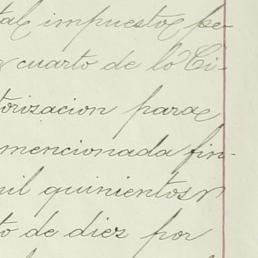 tal impuesto pe
cuarto de lo Ci-
torizacion para
mencionada fin-
mil quinientos
to de diez por